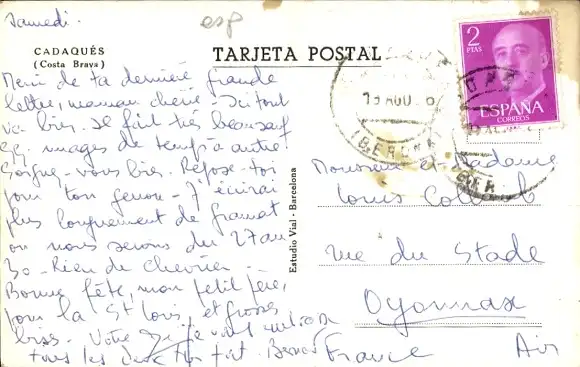 Samedi.
esp
CADAQUÉS
(Costa Brava)
TARJETA POSTAL
Merci de ta dernière grande
lettre, maman chérie - Ici tout
va bien. Il fait très beau sauf
qq. nuages de temps à autre.
Soigne-vous bien. Repose-toi
pour ton genou - J'écrirai
plus longuement de
où nous serons du 27 au
30 - Rien de
Bonne fête, mon petit père,
pour la St Louis, et grosses
bises. Votre qui vous
tous les deux très fort.
Estudio Vial - Barcelona
2
PTAS
ESPAÑA
CORREOS
19 AGO
Monsieur et Madame
Louis
rue du Stade
Oyonnax
France
Ain